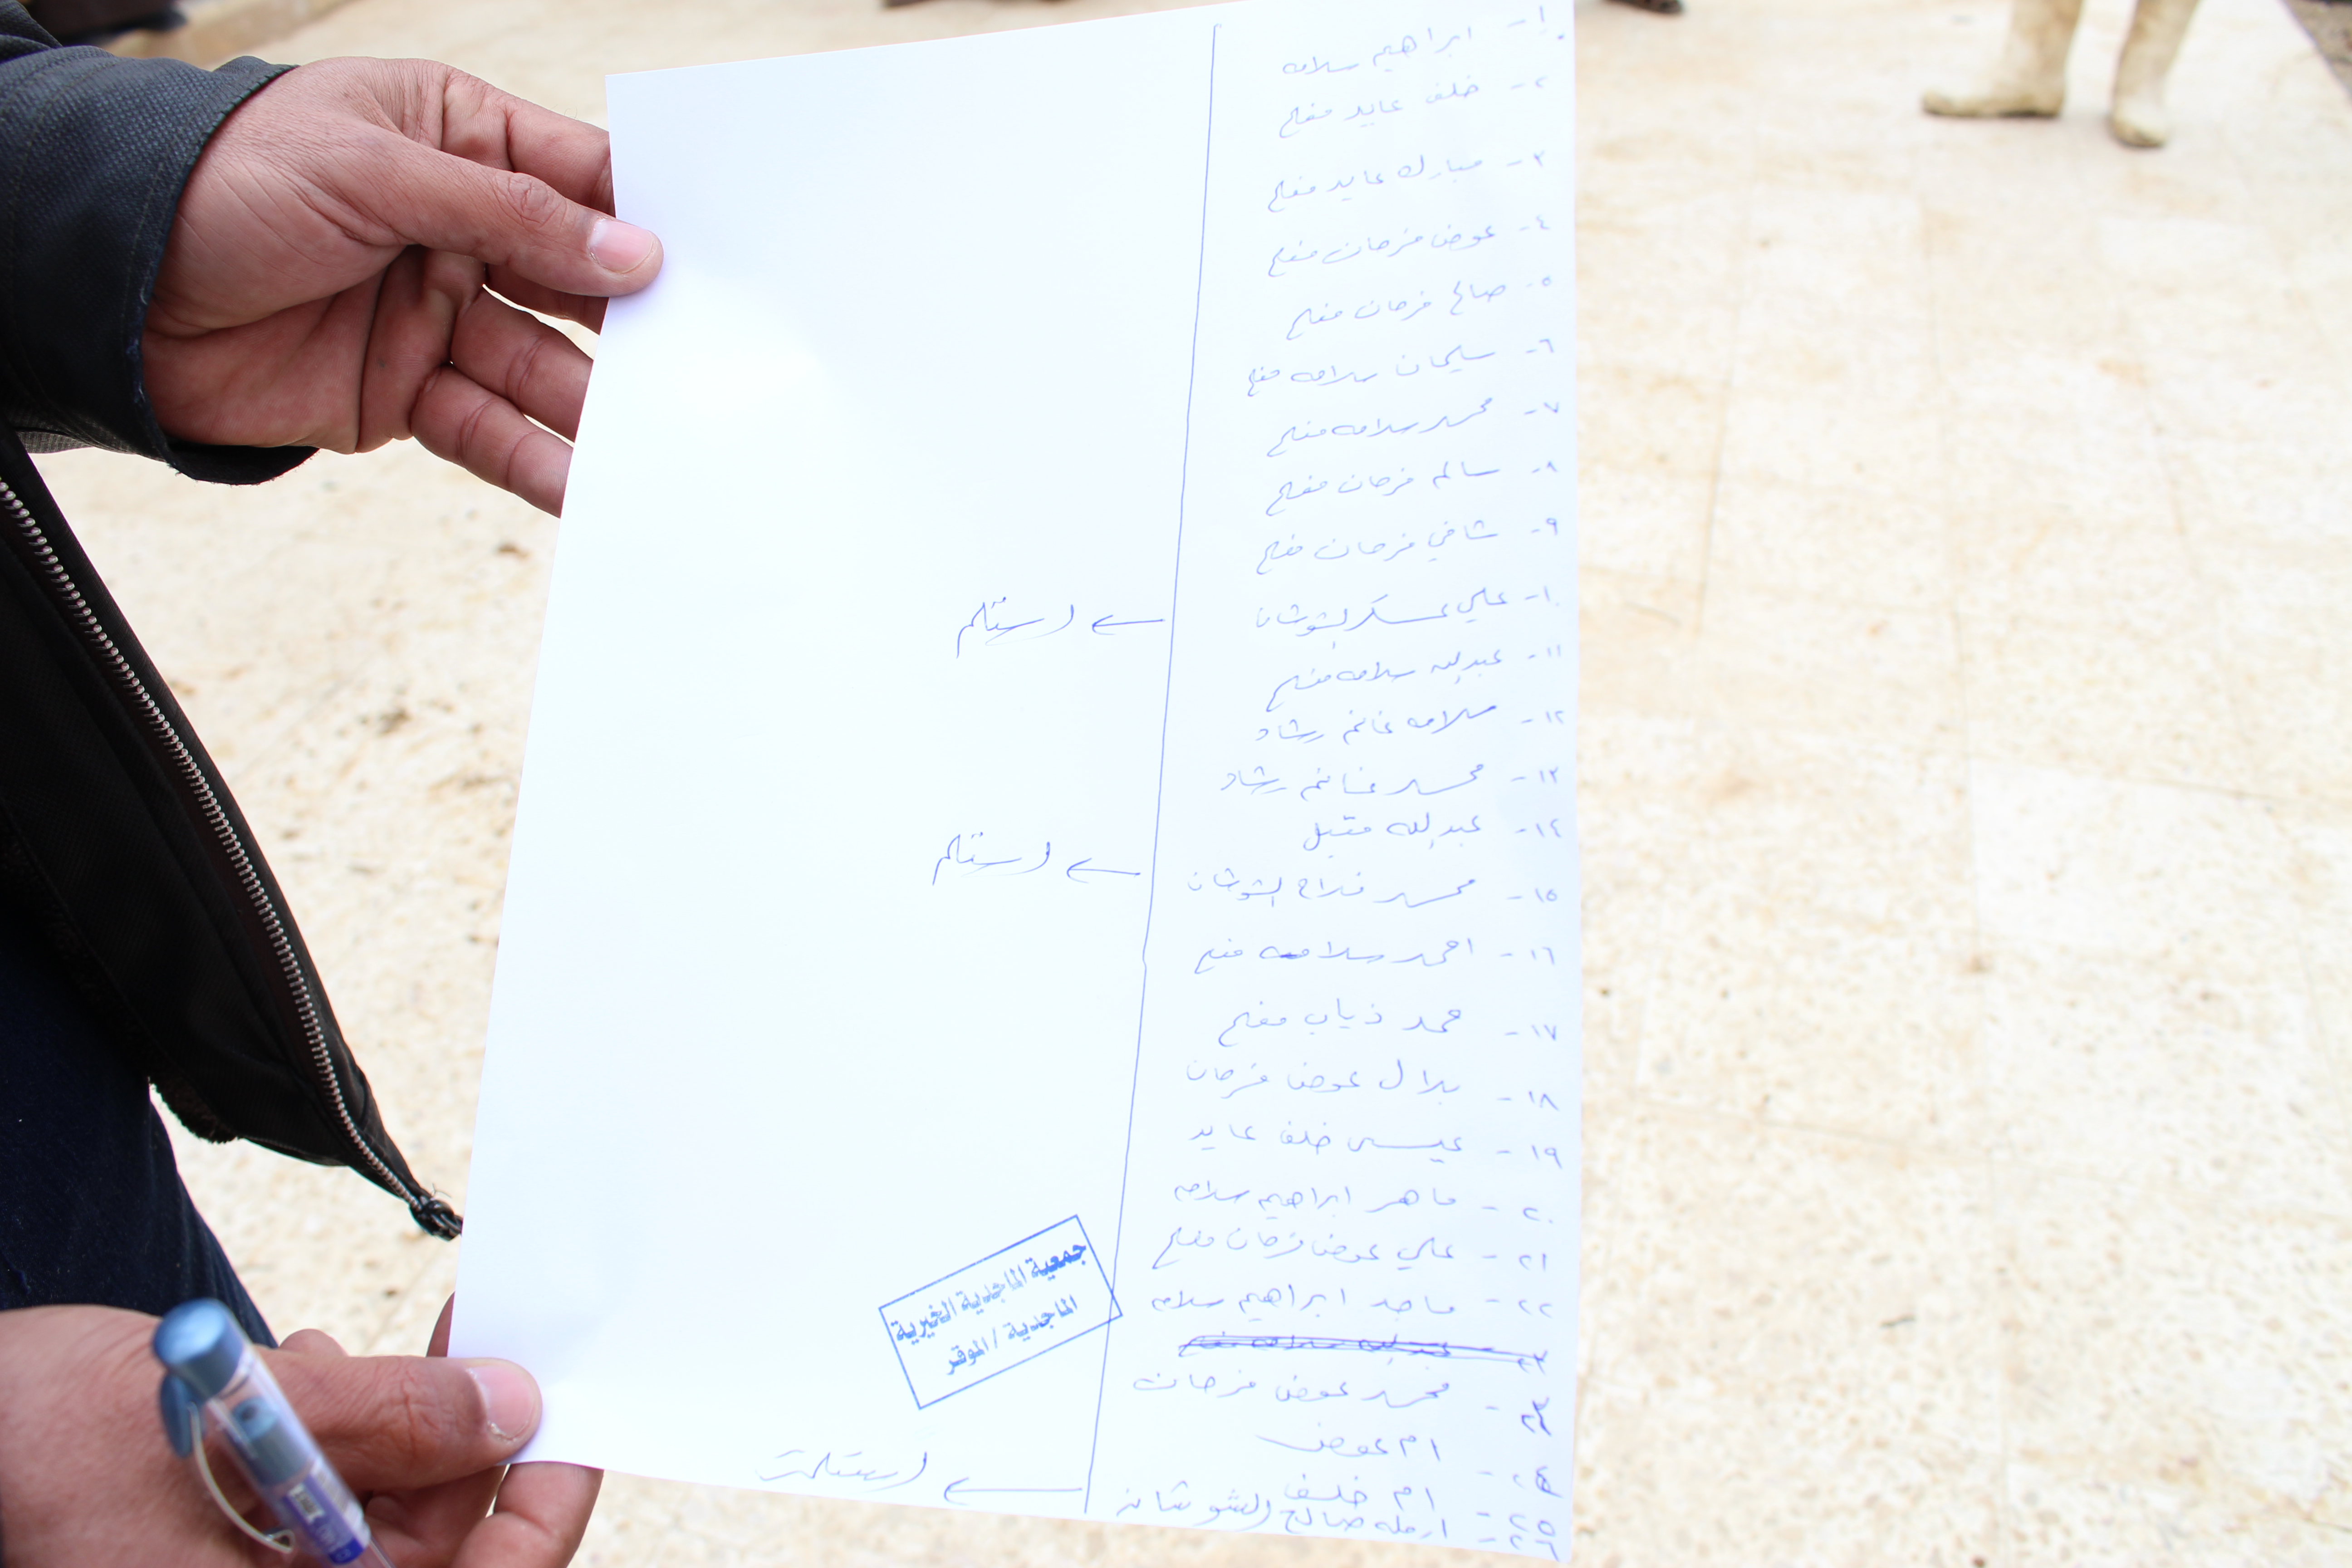 ١- ابراهيم سلامه
٢- خلف عايد مفلح
٣- مبارك عايد مفلح
٤- عوض فرحان مفلح
٥- صالح فرحان مفلح
٦- سليمان سلامه مفلح
٧- محمد سلامه مفلح
٨- سالم فرحان مفلح
٩- شافي فرحان مفلح
١٠- علي عسكر الشوشان ← استلم
١١- عبدالله سلامه مفلح
١٢- سلامه غانم رشاد
١٣- محمد غانم رشاد
١٤- عبدالله مقبل
١٥- محمد فلاح الشوشان ← استلم
١٦- احمد سلامه مفلح
١٧- حمد ذياب مفلح
١٨- بلال عوض فرحان
١٩- عيسى خلف عايد
٢٠- ماهر ابراهيم سلامه
٢١- علي عوض فرحان مفلح
٢٢- ماجد ابراهيم سلامه
٢٣- محمد عوض فرحان
٢٤- ام عوض
٢٥- ام خلف
٢٦- ارمله صالح الشوشان ← استلمت
جمعية الماجدية الخيرية
الماجدية / الموقر